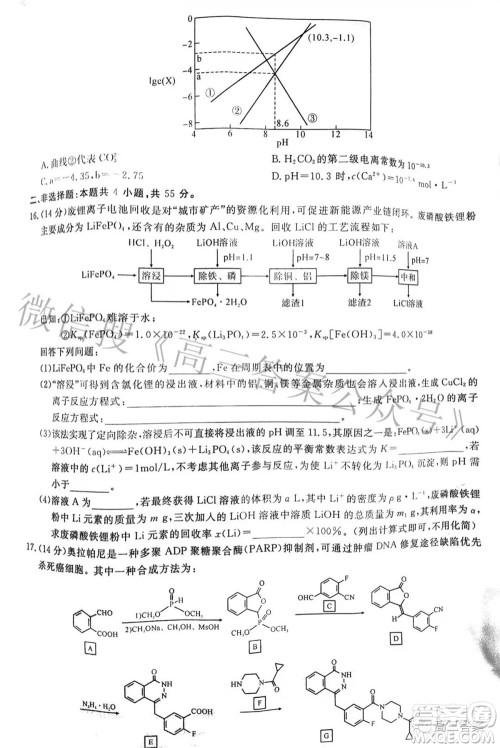 0
-2
b
a
-4
-6
-8
lgc(X)
(10.3,-1.1)
①
②
③
4
6
8
8.6
10
12
14
pH
A.曲线②代表CO₃²⁻
B. H₂CO₃的第二级电离常数为10⁻¹⁰·³
C.a=-4.35, b=-2.75
D. pH=10.3时, c(Ca²⁺)= mol·L⁻¹
二、非选择题:本题共4小题,共55分。
16.(14分)废锂离子电池回收是对“城市矿产”的资源化利用,可促进新能源产业链闭环。废磷酸铁锂粉
主要成分为LiFePO₄,还含有的杂质为Al、Cu、Mg。回收LiCl的工艺流程如下:
HCl、H₂O₂
LiOH溶液
pH=1
LiOH溶液
pH=7.5
LiOH溶液
pH=11.5
溶液A
LiFePO₄
溶浸
除铁、磷
除铜、铝
除镁
中和
FePO₄·2H₂O
滤渣1
滤渣2
LiCl溶液
已知:①LiFePO₄难溶于水;
②Kₛₚ(FePO₄)=1.0×10⁻²², Kₛₚ(Li₃PO₄)=2.5×10⁻³, Kₛₚ[Fe(OH)₃]=4.0×10⁻³⁸
回答下列问题:
(1)LiFePO₄中Fe的化合价为 ,Fe在周期表中的位置为 。
(2)“溶浸”可得到含氯化锂的浸出液,材料中的铝、铜、镁等金属杂质也会溶入浸出液,生成CuCl₂的
离子反应方程式: ,生成FePO₄·2H₂O的离
子反应方程式: 。
(3)该法实现了定向除杂,溶浸后不可直接将浸出液的pH调至11.5,其原因之一是:FePO₄(s)+3Li⁺(aq)
+3OH⁻(aq) Fe(OH)₃(s)+Li₃PO₄(s),该反应的平衡常数表达式K= ,若
溶浸液中的c(Li⁺)=1mol/L,不考虑其他离子参与反应,为了不出现Li₃PO₄沉淀,则pH需
小于 。
(4)溶液A为 ,若最终获得LiCl溶液的总体积为V L,其中Li⁺的浓度为c g/L,废磷酸铁锂
粉中Li元素的质量为m g,三次加入的LiOH溶液中Li元素的总质量为n g,则废磷酸铁锂
粉中Li元素的浸出率为 ×100%。
17.(14分)奥拉帕尼是一种多聚ADP聚糖聚合酶(PARP)抑制剂,可通过肿瘤DNA修复途径缺陷优先
杀死癌细胞。其中一种合成方法为:
CHO
COOH
A
1)CH₃O
OCH₃
2)CH₃ONa、CH₃OH、MsOH
B
OHC
F
CN
C
D
N₂H₄·H₂O
E
COOH
HN
F
G